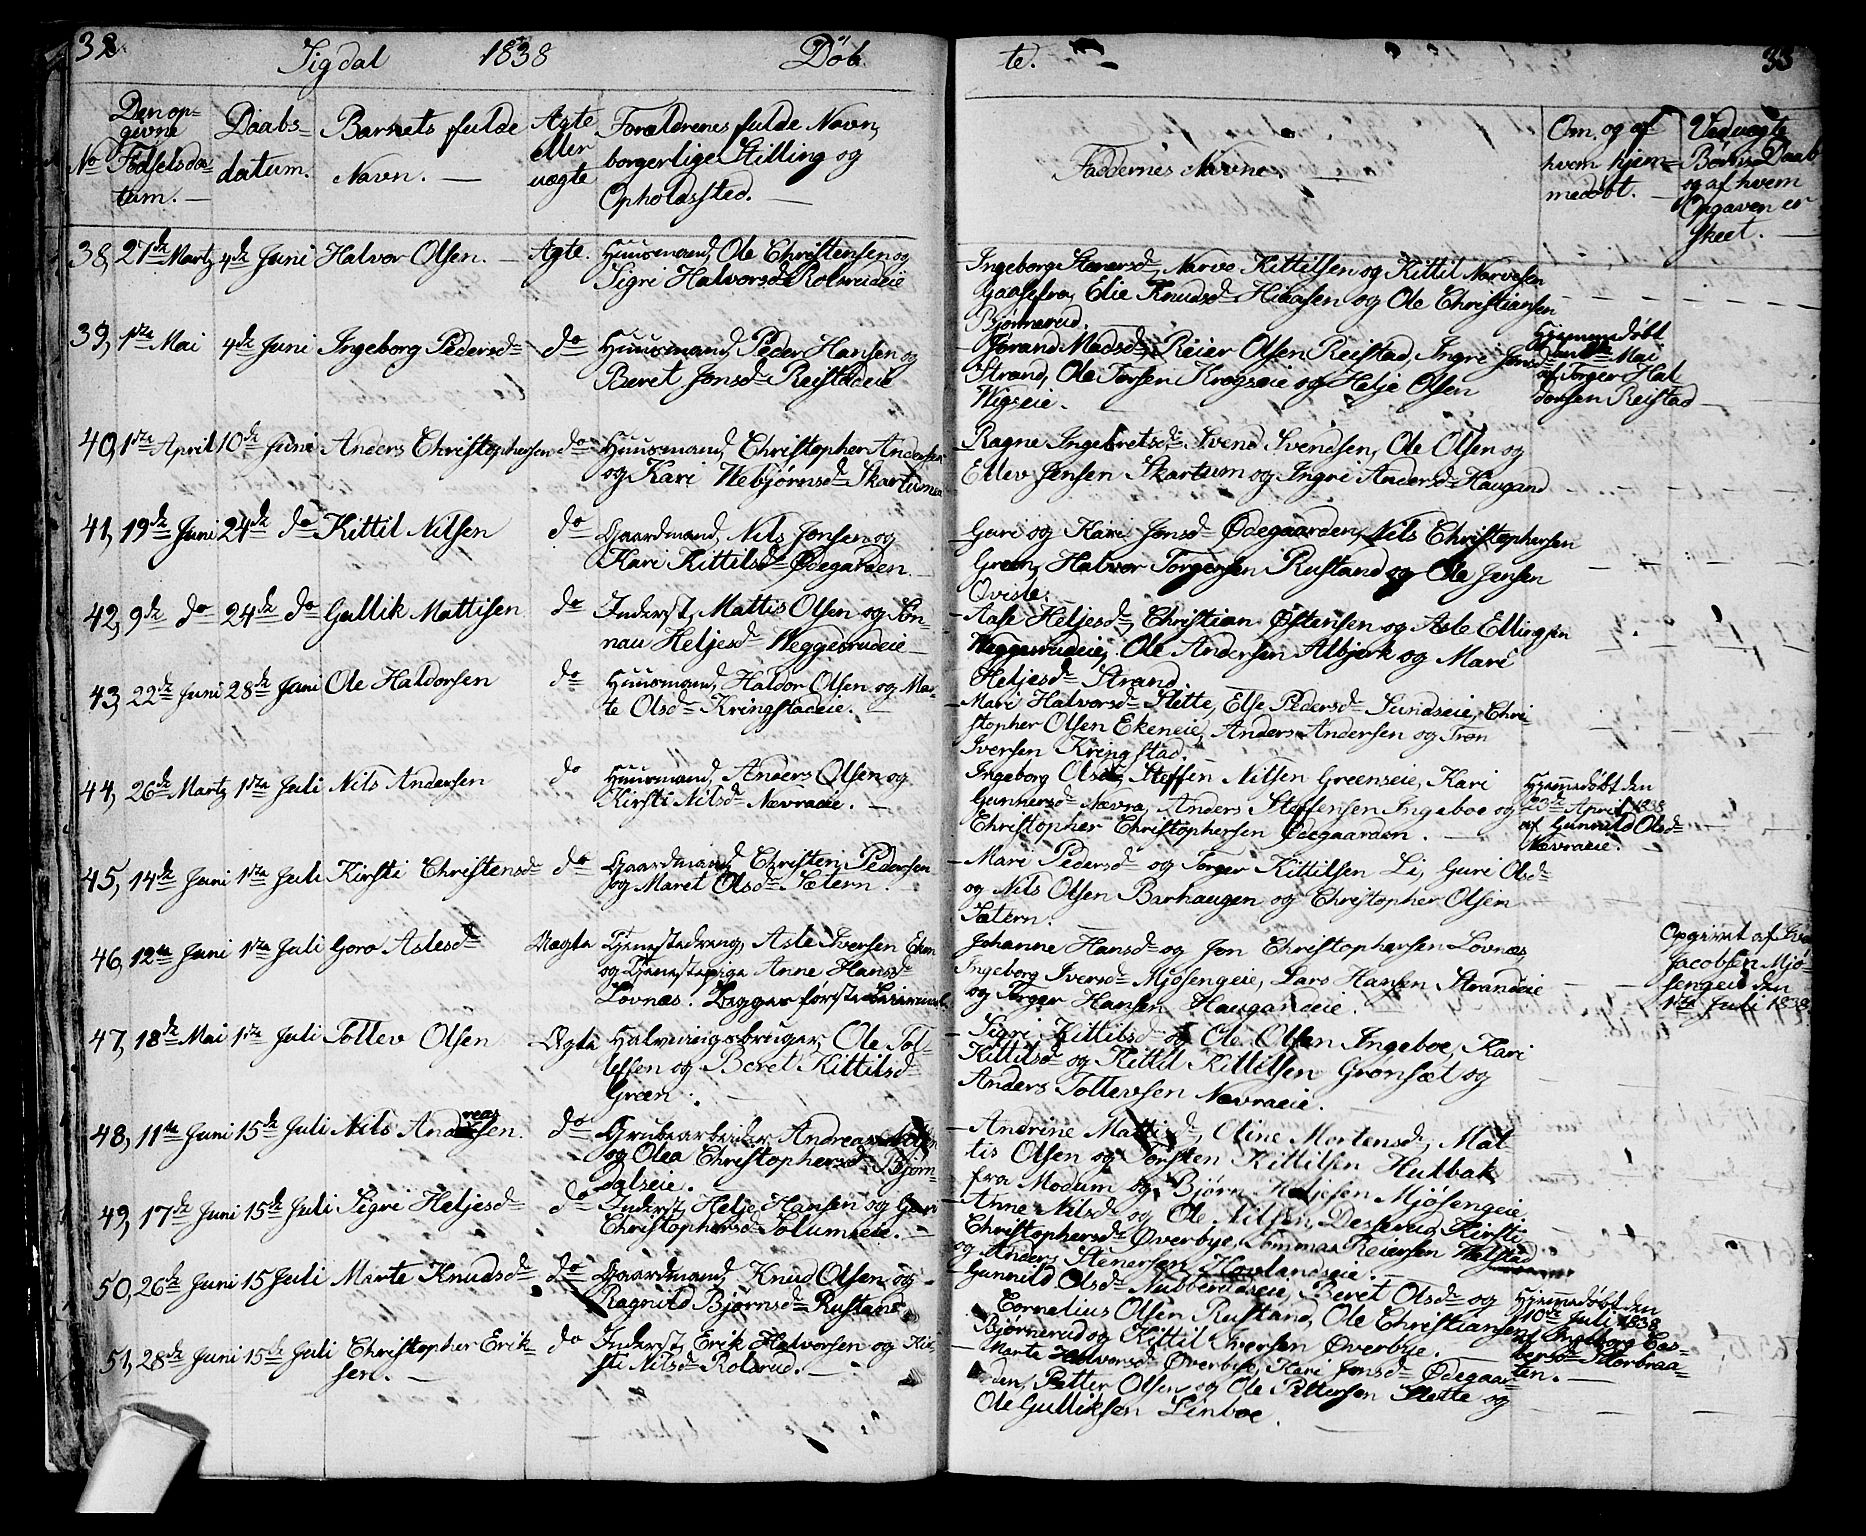 32
Sigdal 1838 Döb
No
Den op-
givne
Fødselsda-
tum. —
Daabs-
datum.
Barnets fulde
Navn. —
Ægte
eller
uægte
Forældrenes fulde Navn,
borgerlige Stilling og
Opholdssted. —
38, 27de Martz 4de Juni Halvor Olsen. — Ægte. Huusmand, Ole Christensen og
Sigri Halvorsd Rolsrudeie
39, 1ste Mai 4de Juni Ingeborg Pedersd do Huusmand, Peder Hansen og
Beret Jonsd Reistadeie
40, 1ste April 10de Juni Anders Christophersen do Huusmand, Christopher Andersen
og Kari Webjørnsd Skartumeie
41, 19de Juni 24de do Kittil Nilsen do Gaardmand, Nils Jonsen og
Kari Kittilsd Ødegarden
42, 9de do 24de do Gullik Mattisen do Inderst, Mattis Olsen og Søn-
nau Heljesd Weggesrudeie —
43, 22de Juni 28de Juni Ole Haldorsen do Huusmand, Haldor Olsen og Mar-
te Olsd Kringstadeie. —
44, 26de Martz 1ste Juli Nils Andersen do Huusmand, Anders Olsen og
Kirsti Nilsd Nævraeie. —
45, 14de Juni 1ste Juli Kirsti Christensd do Gaardmand Christen Pedersen
og Maret Olsd Sætern.
46, 12te Juni 1ste Juli Goro Aslesd Uægte Tjenestedreng, Asle Iversen Eken
og Tjenestepige Anne Hansd
Lovnæs. Begges første Leiermaal.
47, 18de Mai 1ste Juli Tollev Olsen Ægte Halveiringsbruger, Ole Tol-
lefsen og Beret Kittilsd
Green.
48, 11te Juni 15de Juli Nils Andreassen. do Grubearbeider Andreas Nilsen
og Olea Christophersd Bjørn-
dalseie.
49, 17de Juni 15de Juli Sigri Heljesd do Inderst, Helje Hansen og Guri
Christophersd Solumseie. —
50, 26de Juni 15 Juli Marte Knudsd do Gaardmand, Knud Olsen og
Ragnild Bjørnsd Rustand
51, 28de Juni 15de Juli Christopher Erik-
sen. — do Inderst, Erik Halvorsen og Kir-
sti Nilsd Rolsrud. —
te. 33
Faddernes Navne. —
Om, og af
hvem hjem-
medøbt. —
Ved uægte
Børns Daab
og af hvem
Opgaven er
skeet. —
Ingeborg Stenersd, Narve Kittilsen og Kittil Narvesen
Gaasefra, Elie Knudsd Hiaasen og Ole Christiansen
Bjørnerud.
Jørand Madsd, Reier Olsen Reistad, Ingri Jonsd
Strand, Ole Torsen Kragseie og Helje Olsen
Wigseie. —
Hjemmedøbt
Mai
af Torger Hal
dorsen Reistad —
Ragne Ingebretsd Svend Svendsen, Ole Olsen og
Ellev Jensen Skartum og Ingri Andersd Haugand
Guri og Kari Jonsd Ødegaarden, Nils Christophersen
Green, Halvor Torgersen Rustand og Ole Jensen
Qvisle.
Aase Heljesd, Christian Østensen og Asle Ellingsen
Weggesrudeie, Ole Andersen Albjerk og Mari
Heljesd Strand.
Mari Halvorsd Slette, Else Pedersd Sundseie, Chri-
stopher Olsen Ekeneie, Anders Andersen og Tron
Iversen Kringstad.
Ingeborg Olsd, Steffen Nilsen Greenseie, Kari
Gunnersd Nævra, Anders Steffensen Ingeboe og
Christopher Christophersen Ødegaarden. —
Hjemmedøbt den
23de April 1838
af Gunnild Olsd
Nævraeie. —
Mari Pedersd og Torger Kittilsen Li, Guri Olsd
og Nils Olsen Barhaugen og Christopher Olsen
Sætern.
Johanne Hansd og Jon Christophersen Lovnæs
Ingeborg Iversd Mjøsengeie, Lars Hansen Strandeie
og Torger Hansen Haugandeie.
Opgivet af Iver
Jacobsen Mjø-
sengeie den
1ste Juli 1838
Sigri Kittilsd og Ole Olsen Ingeboe, Kari
Kittilsd og Kittil Kittilsen Grønsæt og
Anders Tollevsen Nævraeie. —
Andrine Mattisd, Oline Mortensd, Mat
tis Olsen og Torsten Kittilsen Hulbak
fra Modum og Bjørn Heljesen Mjøsengeie
Anne Nilsd og Ole Nilsen Desserud, Kirsti
Christophersd Øverbye, Tommas Reiersen Wælstad
og Anders Stenersen Hovlandseie. —
Gunnild Olsd Nubberudseie, Beret Olsd og
Cornelius Olsen Rustand, Ole Christiansen
Bjørnerud og Kittil Iversen Øverbye. —
Hjemmedøbt den
10de Juli 1838
af Ingeborg Es-
bersd Storbraa-
ten. —
Marte Halvorsd Øverbye, Kari Jonsd Ødegaar-
den, Petter Olsen og Ole Pettersen Slette og
Ole Gulliksen Lenboe.